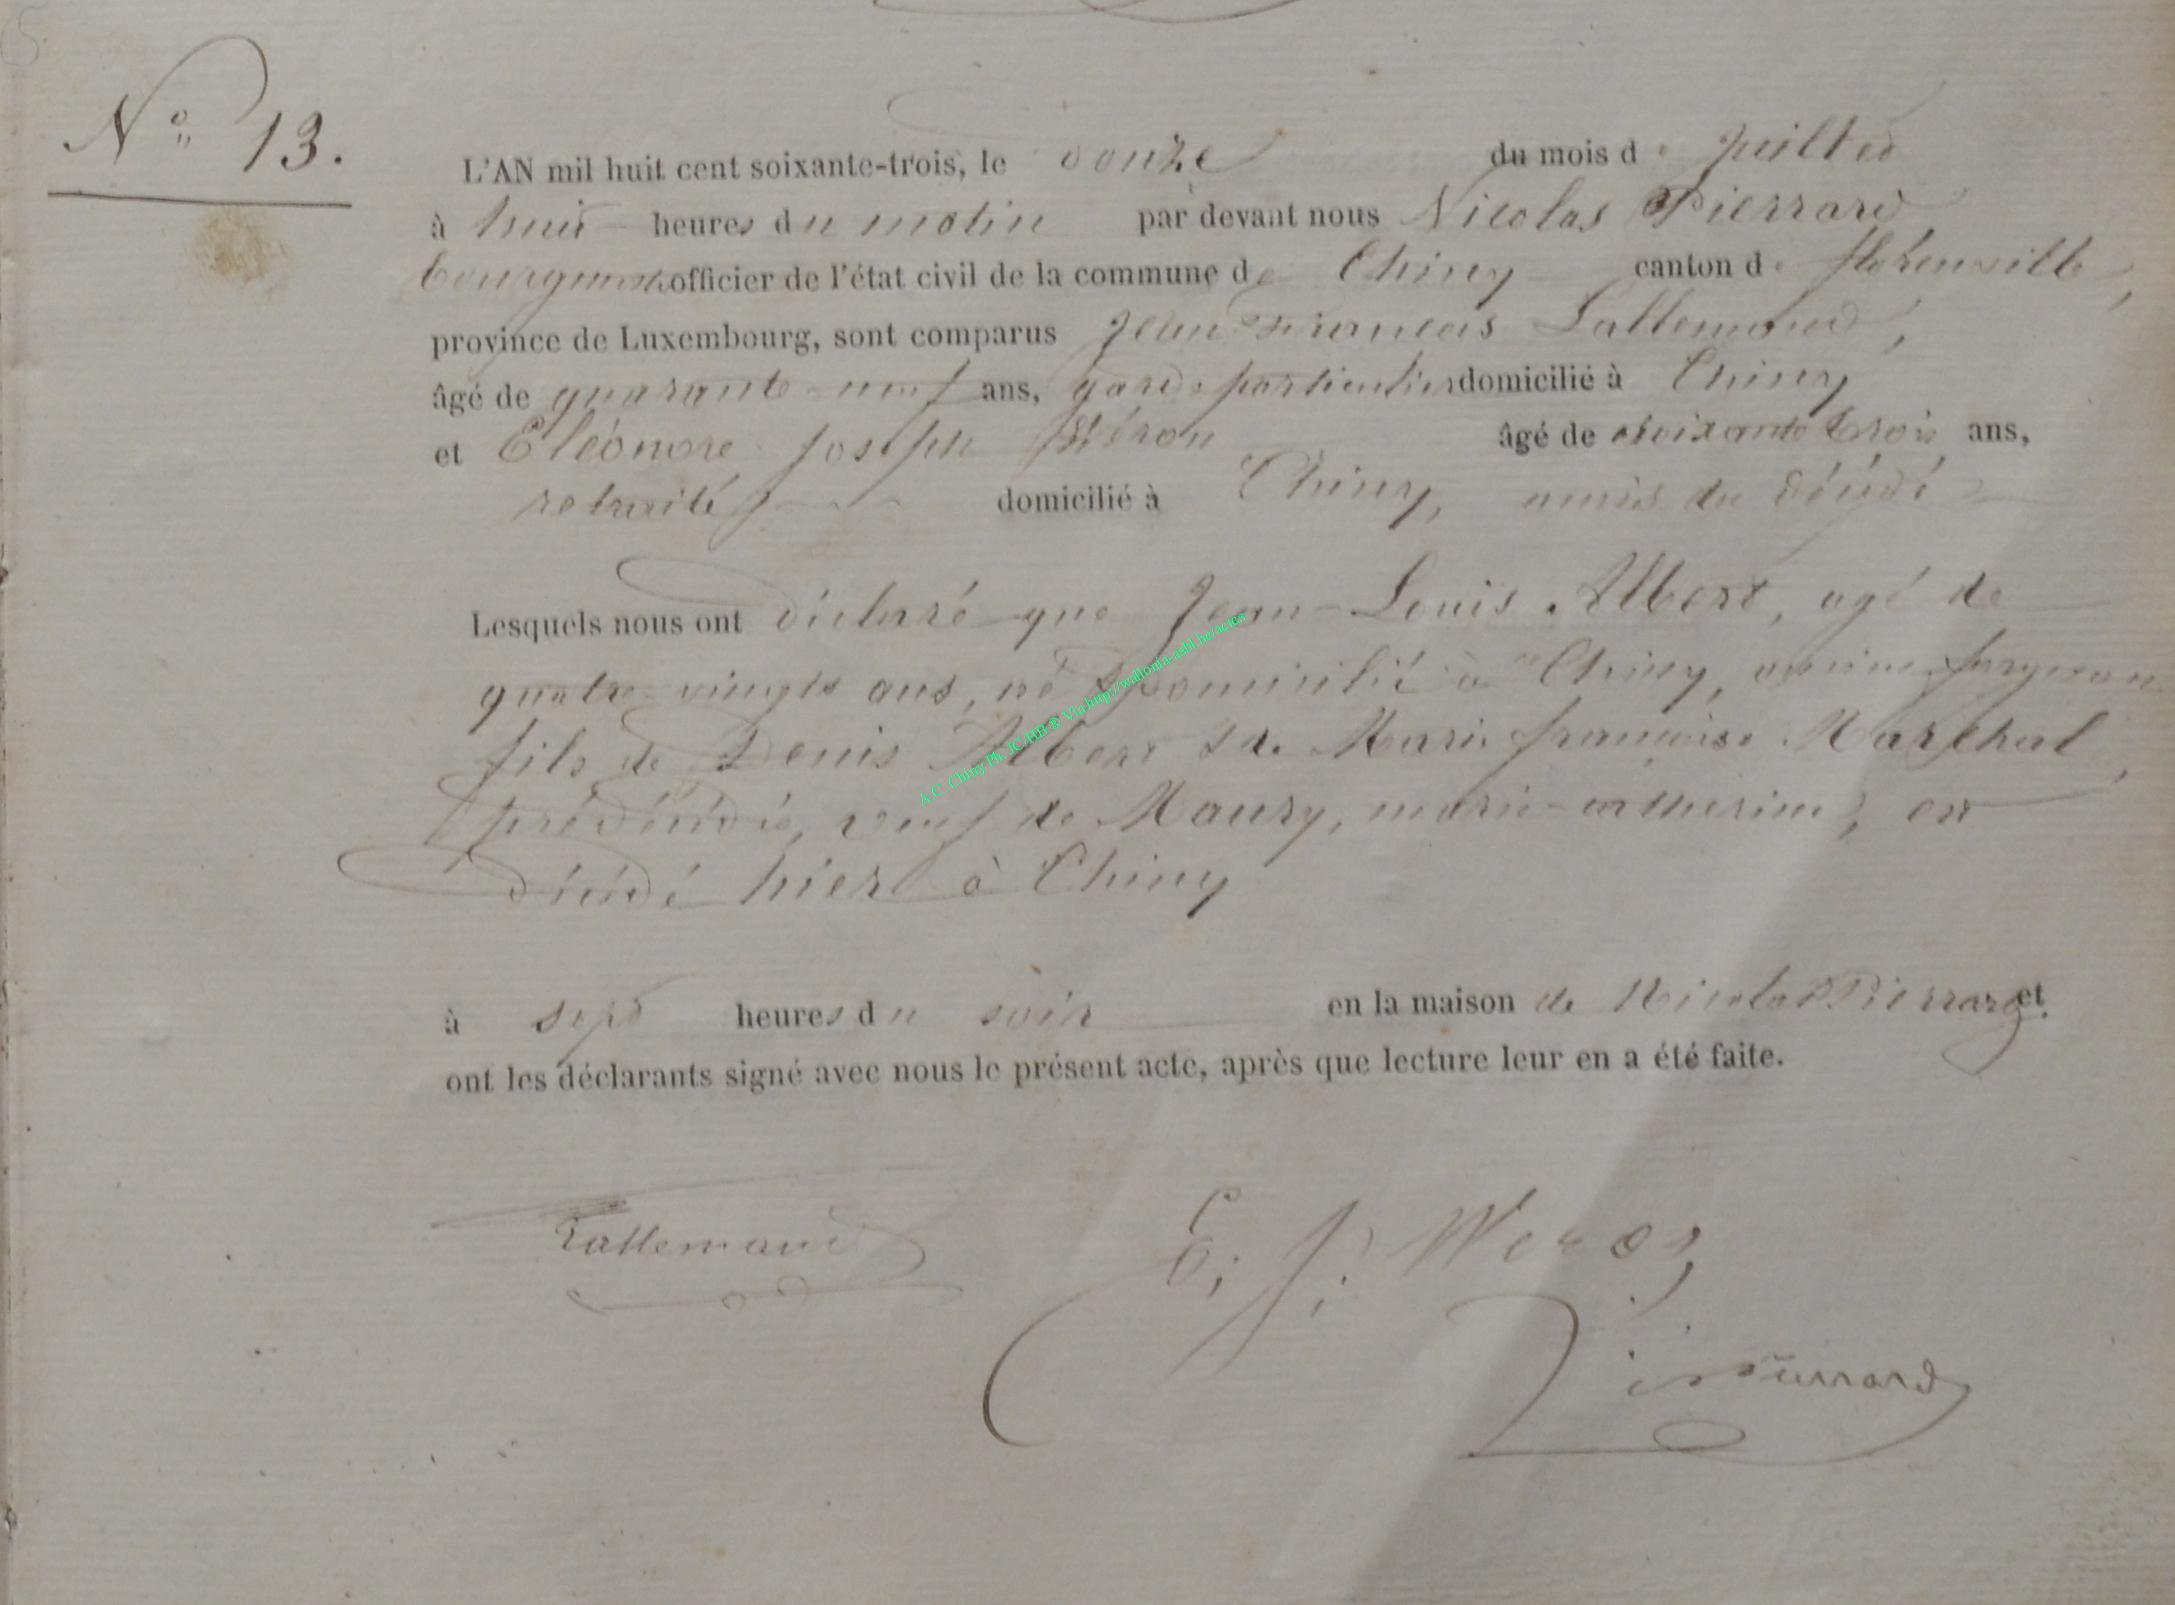 N° 13.
L'AN mil huit cent soixante-trois, le douze du mois de juillet
à huit heures du matin par devant nous Nicolas Pierrard
bourgmestre officier de l'état civil de la commune de Chiny canton de florenville,
province de Luxembourg, sont comparus Jean François Lallemand,
âgé de quarante-neuf ans, garde particulier domicilié à Chiny
et Eléonore Joseph âgé de soixante trois ans,
retraité domicilié à Chiny, amis du décédé
Lesquels nous ont déclaré que Jean-Louis Albert, agé de
quatre-vingts ans, né & domicilié à Chiny, ancien forgeron
fils de Denis Albert & de Marie françoise Maréchal,
prédécédés, veuf de Maury, marie-catherine, est
décédé hier à Chiny
à sept heures du soir en la maison de Nicolas Pierrard et
ont les déclarants signé avec nous le présent acte, après que lecture leur en a été faite.
Lallemand
E. J. 
Pierrard
A.C. Chiny Ph. JC.HB ® Via http://wallonia-asbl.be/actes